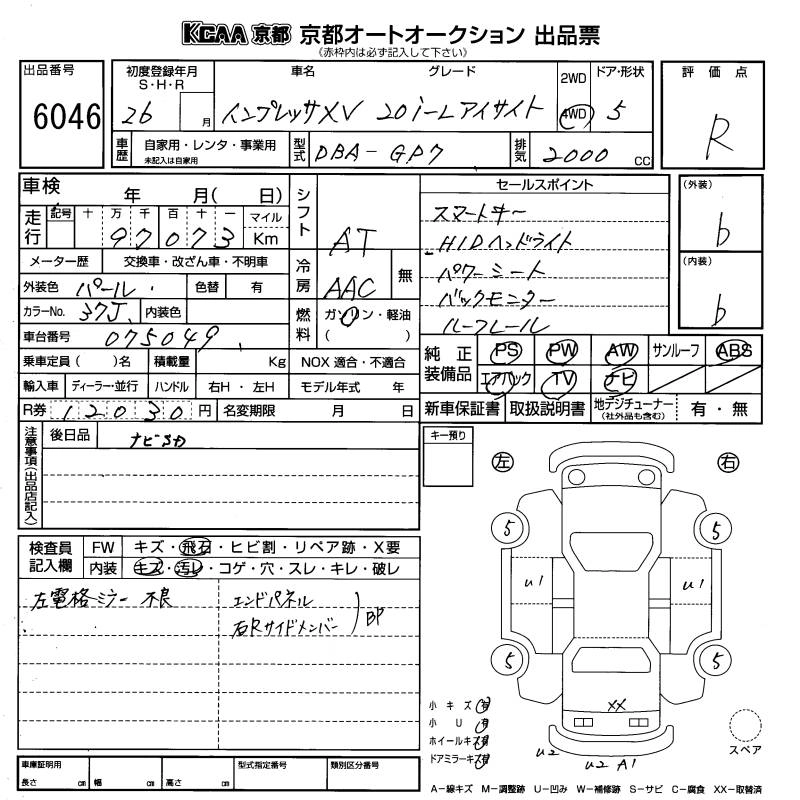 KCAA 京都 京都オートオークション 出品票
(赤枠内は必ず記入して下さい)
出品番号 6046
初度登録年月 S・H・R 26 月
車名 グレード インプレッサXV 20i-Lアイサイト
2WD 4WD
ドア・形状 5
評価点 R
車歴 自家用・レンタ・事業用 未記入は自家用
型式 DBA-GP7
排気 2000 CC
車検 年 月( 日)
シフト AT
セールスポイント
スマートキー
HIDヘッドライト
パワーシート
バックモニター
ルーフレール
(外装) b
(内装) b
走行 記号 十 万 千 百 十 一 マイル Km
97073
メーター歴 交換車・改ざん車・不明車
冷房 AAC 無
外装色 パール 色替 有
カラーNo. 37J 内装色
燃料 ガソリン・軽油 ( )
車台番号 075049
乗車定員( )名 積載量 Kg NOX 適合・不適合
輸入車 ディーラー・並行 ハンドル 右H・左H モデル年式 年
R券 12030 円 名変期限 月 日
純正装備品 PS PW AW サンルーフ ABS
エアバック TV ナビ
新車保証書 取扱説明書 地デジチューナー (社外品も含む) 有・無
注意事項(出品店記入)
後日品
キー預り
左 右
検査員記入欄 FW キズ・飛石・ヒビ割・リペア跡・X要
内装 キズ・汚レ・コゲ・穴・スレ・キレ・破レ
左電格ミラー 不良
エンドパネル
右Rサイドメンバー
BP
5 5
U1 U1
5 5
XX
U2 U2 A1
小キズ 有
小U 有
ホイールキズ 有
ドアミラーキズ 有
スペア
車庫証明用 長さ cm 幅 cm 高さ cm
型式指定番号 類別区分番号
A-線キズ M-調整跡 U-凹み W-補修跡 S-サビ C-腐食 XX-取替済